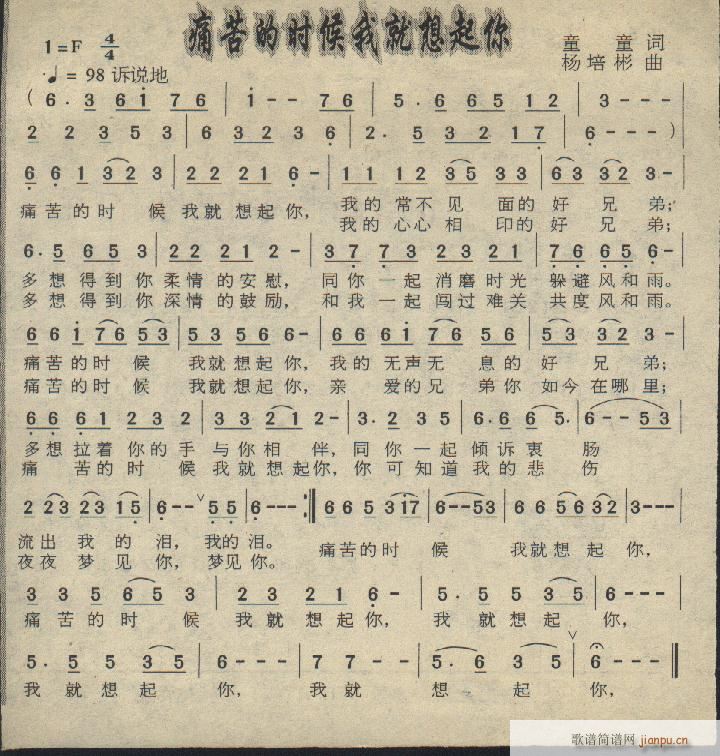 痛苦的时候我就想起你
1=F 4/4
童 童 词
杨培彬 曲
♩= 98 诉说地
( 6· 3 6 1 7 6 | 1 - - 7 6 | 5 · 6 6 5 1 2 | 3 - - - |
2 2 3 5 3 | 6 3 2 3 6 | 2· 5 3 2 1 7 | 6 - - - )
6 6 1 3 2 3 | 2 2 2 1 6 - | 1 1 1 2 3 5 3 3 | 6 3 3 2 3 - |
痛苦的时 候 我就想起你, 我的常不见 面的好 兄 弟;
我的心心相 印的好 兄 弟;
6· 5 6 5 3 | 2 2 2 1 2 - | 3 7 7 3 2 3 2 1 | 7 6 6 5 6 - |
多想得到你柔情的安慰, 同你一起消磨时光 躲避风和雨。
多想得到你深情的鼓励, 和我一起闯过难关 共度风和雨。
6 6 1 7 6 5 3 | 5 3 5 6 6 - | 6 6 6 1 7 6 5 6 | 5 3 3 2 3 - |
痛苦的时 候 我就想起你, 我的无声无 息的好 兄 弟;
痛苦的时 候 我就想起你, 亲 爱的兄 弟你 如今在哪里;
6 6 6 1 2 3 2 | 3 3 2 1 2 - | 3· 2 3 5 | 6· 6 6 2 5· | 6 - - 5 3 |
多想拉着你的手 与你相 伴, 同你一起倾诉衷 肠
痛 苦的时 候我就想起你, 你可知道我的悲 伤
2 2 3 2 3 1 5 | 6 - - ∨ 5 5 | 6 - - - :‖ 6 6 5 3 1 7 | 6 - - 5 3 | 6 6 5 6 3 2 | 3 - - - |
流出 我 的 泪, 我的泪。 痛苦的时 候 我就想 起 你,
夜夜 梦 见 你, 梦见你。
3 3 5 6 5 3 | 2 3 2 1 6 - | 5· 5 5 3 5 | 6 - - - |
痛苦的时 候 我就想起你, 我 就想起 你,
5· 5 5 3 5 | 6 - - - | 7 7 - - | 5 · 6 3 5 ∨ | 6 - - - ‖
我 就想 起 你, 我就 想 起 你,
歌谱简谱网
jianpu.cn